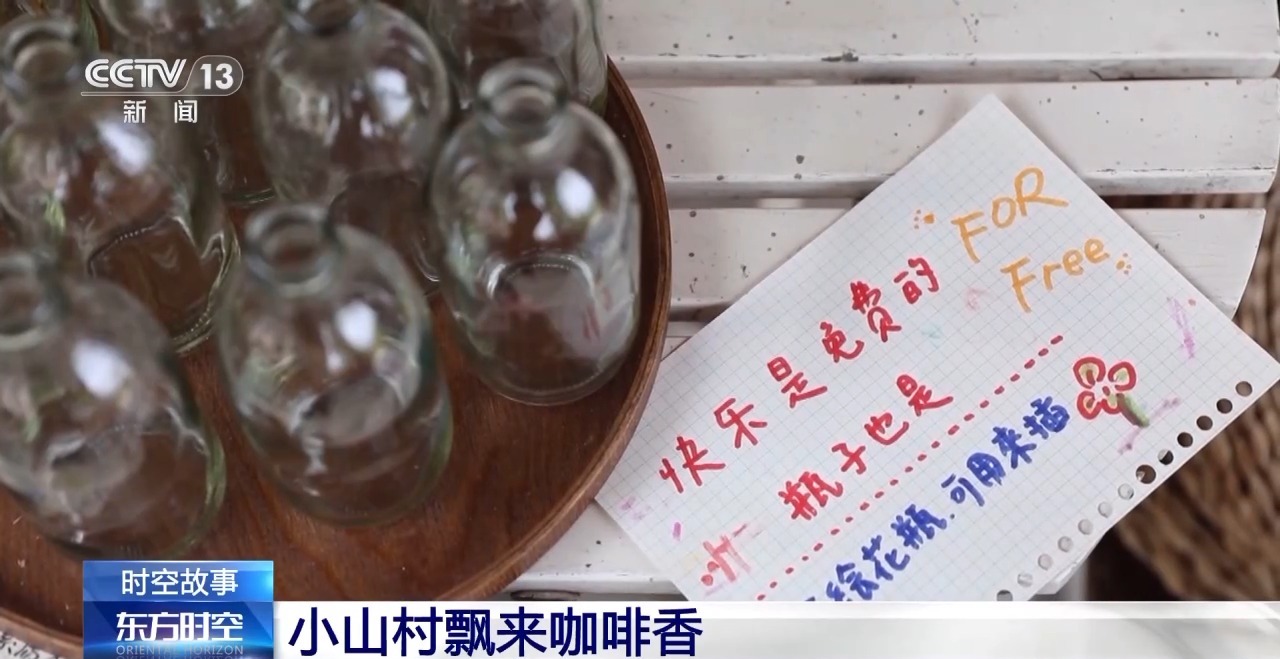 CCTV 13
新闻
FOR
Free
快乐是免费的
瓶子也是
绘花瓶.可用来插
时空故事
东方时空
ORIENTAL HORIZON
小山村飘来咖啡香